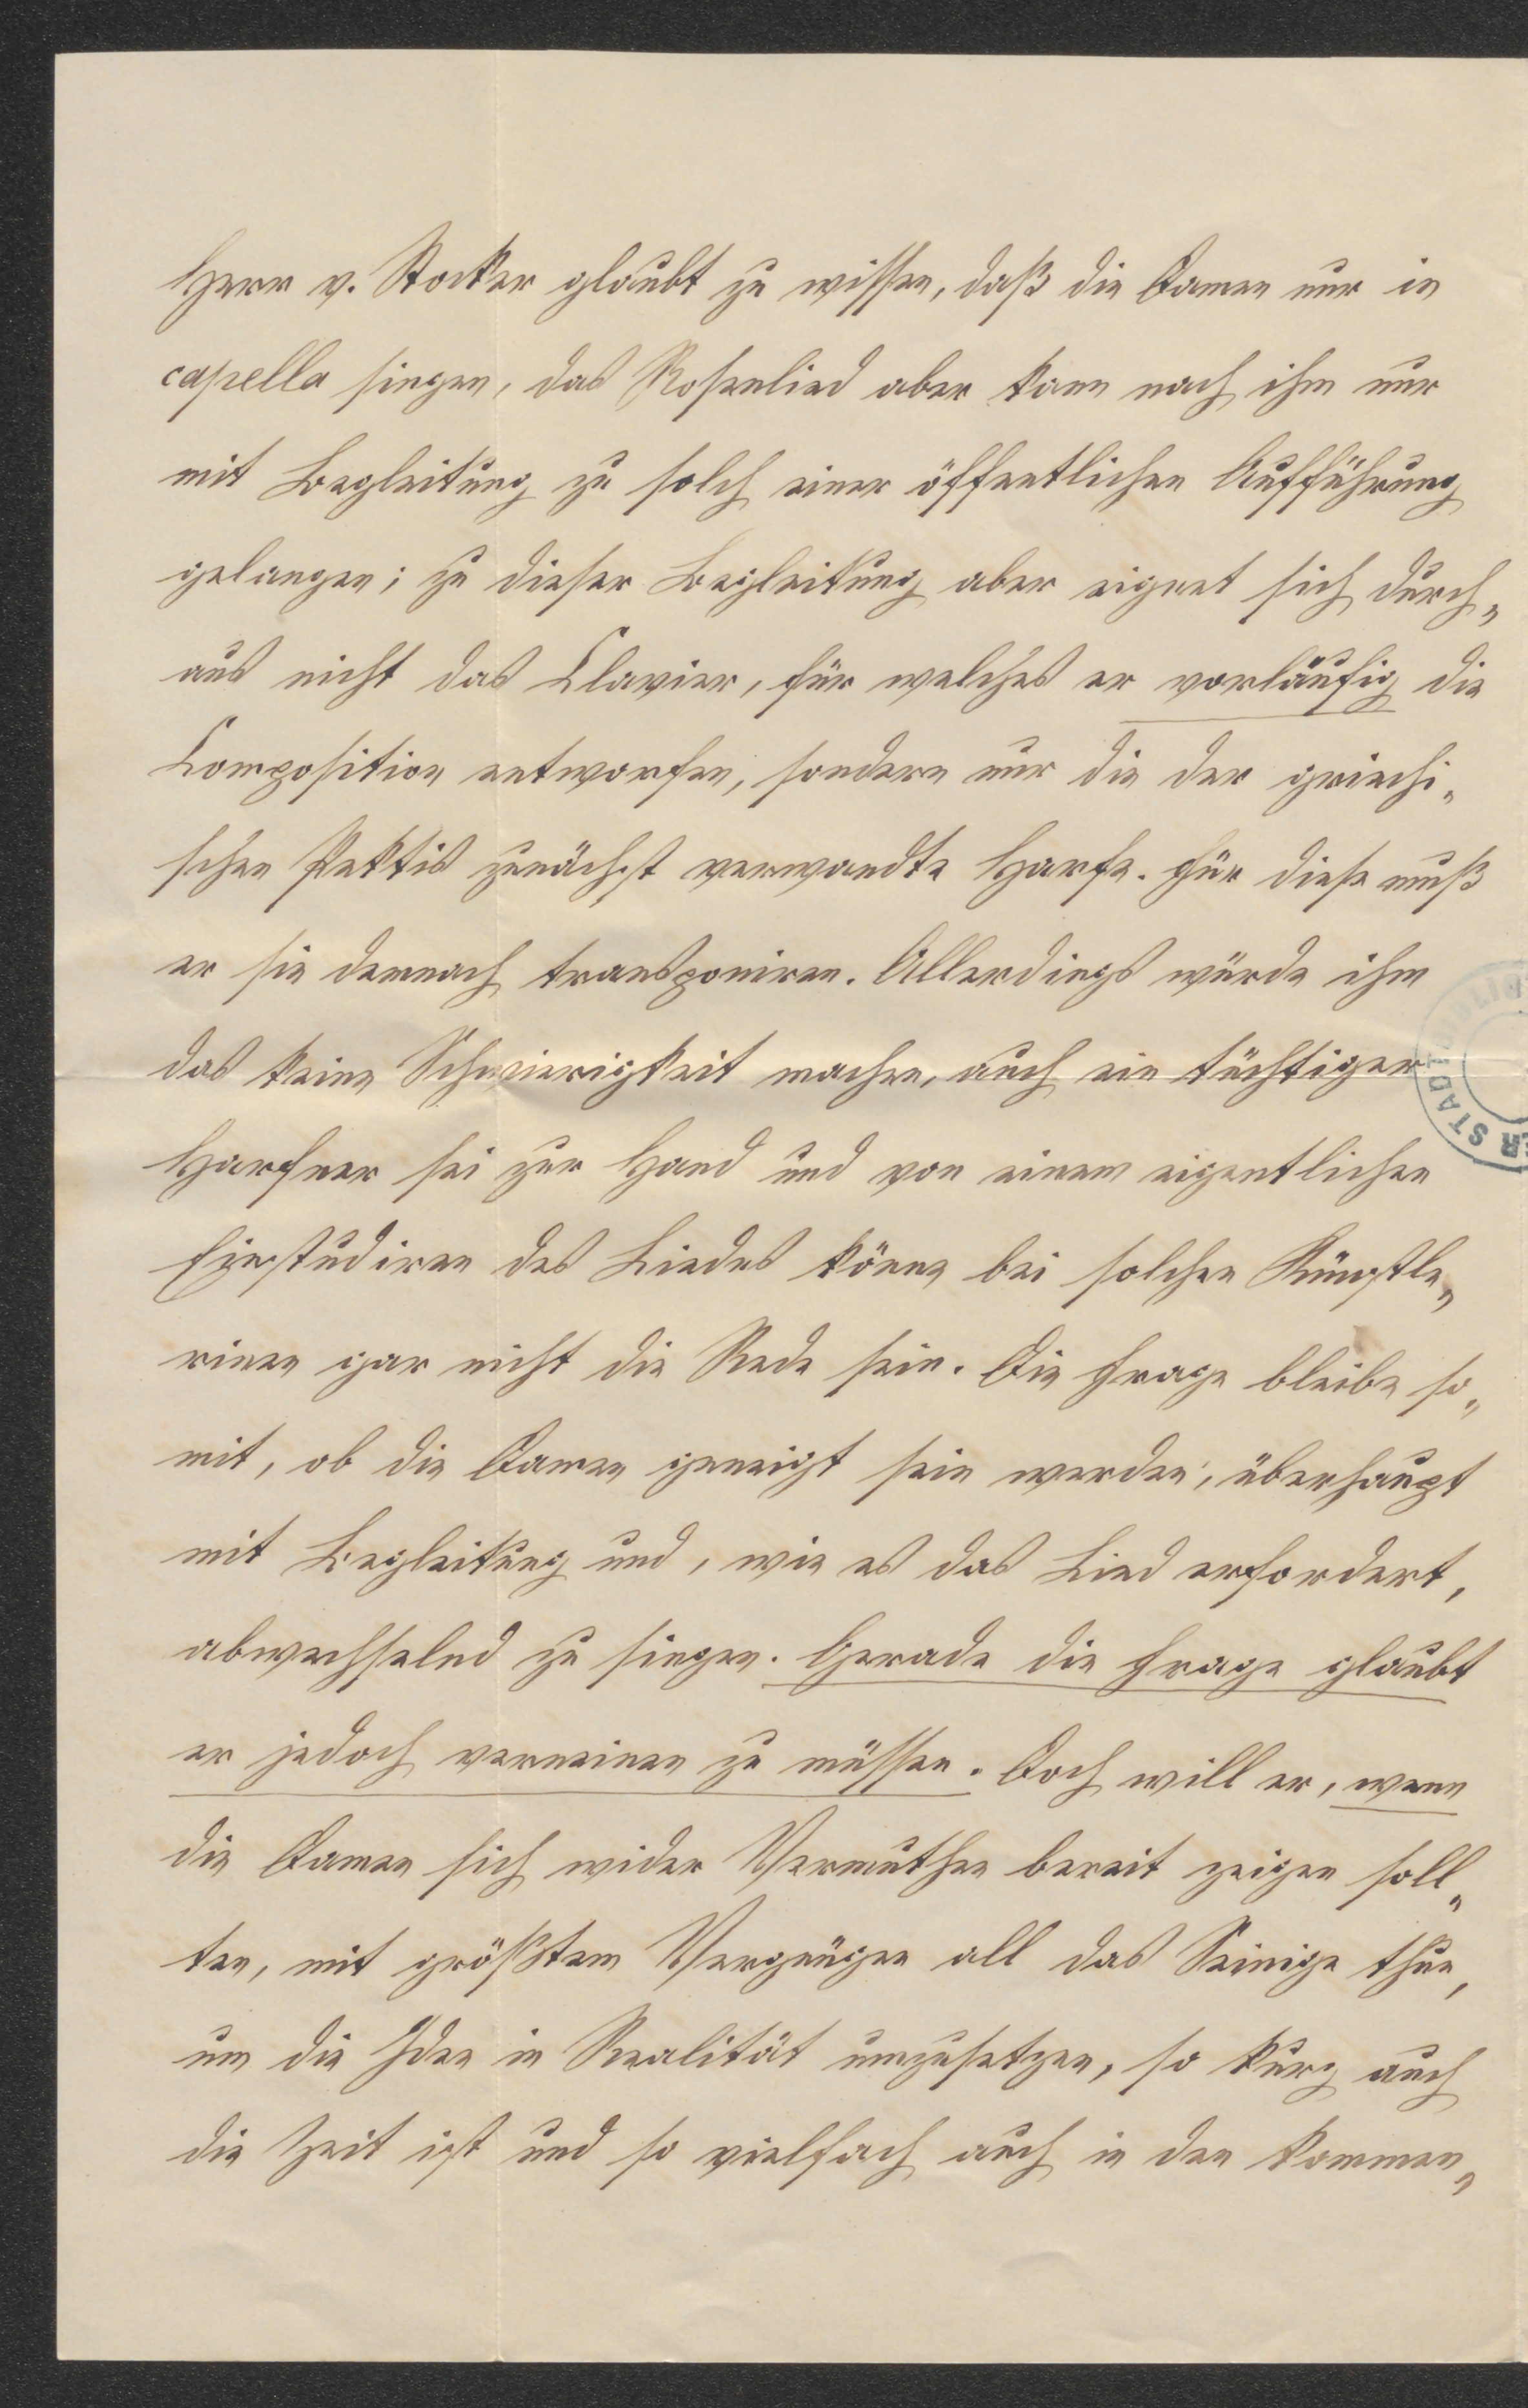 Herr v. Stocker glaubt zu wissen, daß die Damen nur in
capella singen, das Rosenlied aber kann nach ihm nur
mit Begleitung zu solch einer öffentlichen Aufführung
gelangen; zu dieser Begleitung aber eignet sich durch„
aus nicht das Clavier, für welches er vorläufig die
Composition entworfen, sondern nur die der griechi„
schen Pektis zunächst verwandte Harfe. Für diese muß
er sie demnach transponiren. Allerdings würde ihm
das keine Schwierigkeit machen, auch ein tüchtiger
Harfner sei zur Hand und von einem eigentlichen
Einstudiren des Liedes könne bei solchen Künstle„
rinen gar nicht die Rede sein. Die Frage bleibe so„
mit, ob die Damen geneigt sein werden, überhaupt
mit Begleitung und, wie es das Lied erfordert,
abwechselnd zu singen. Gerade die Frage glaubt
er jedoch verneinen zu müssen. Doch will er, wenn
die Damen sich wider Vermuthen bereit zeigen soll„
ten, mit größtem Vergnügen all das Seinige thun,
um die Idee in Realität umzusetzen, so kurz auch
die Zeit ist und so vielfach auch in den kommen„